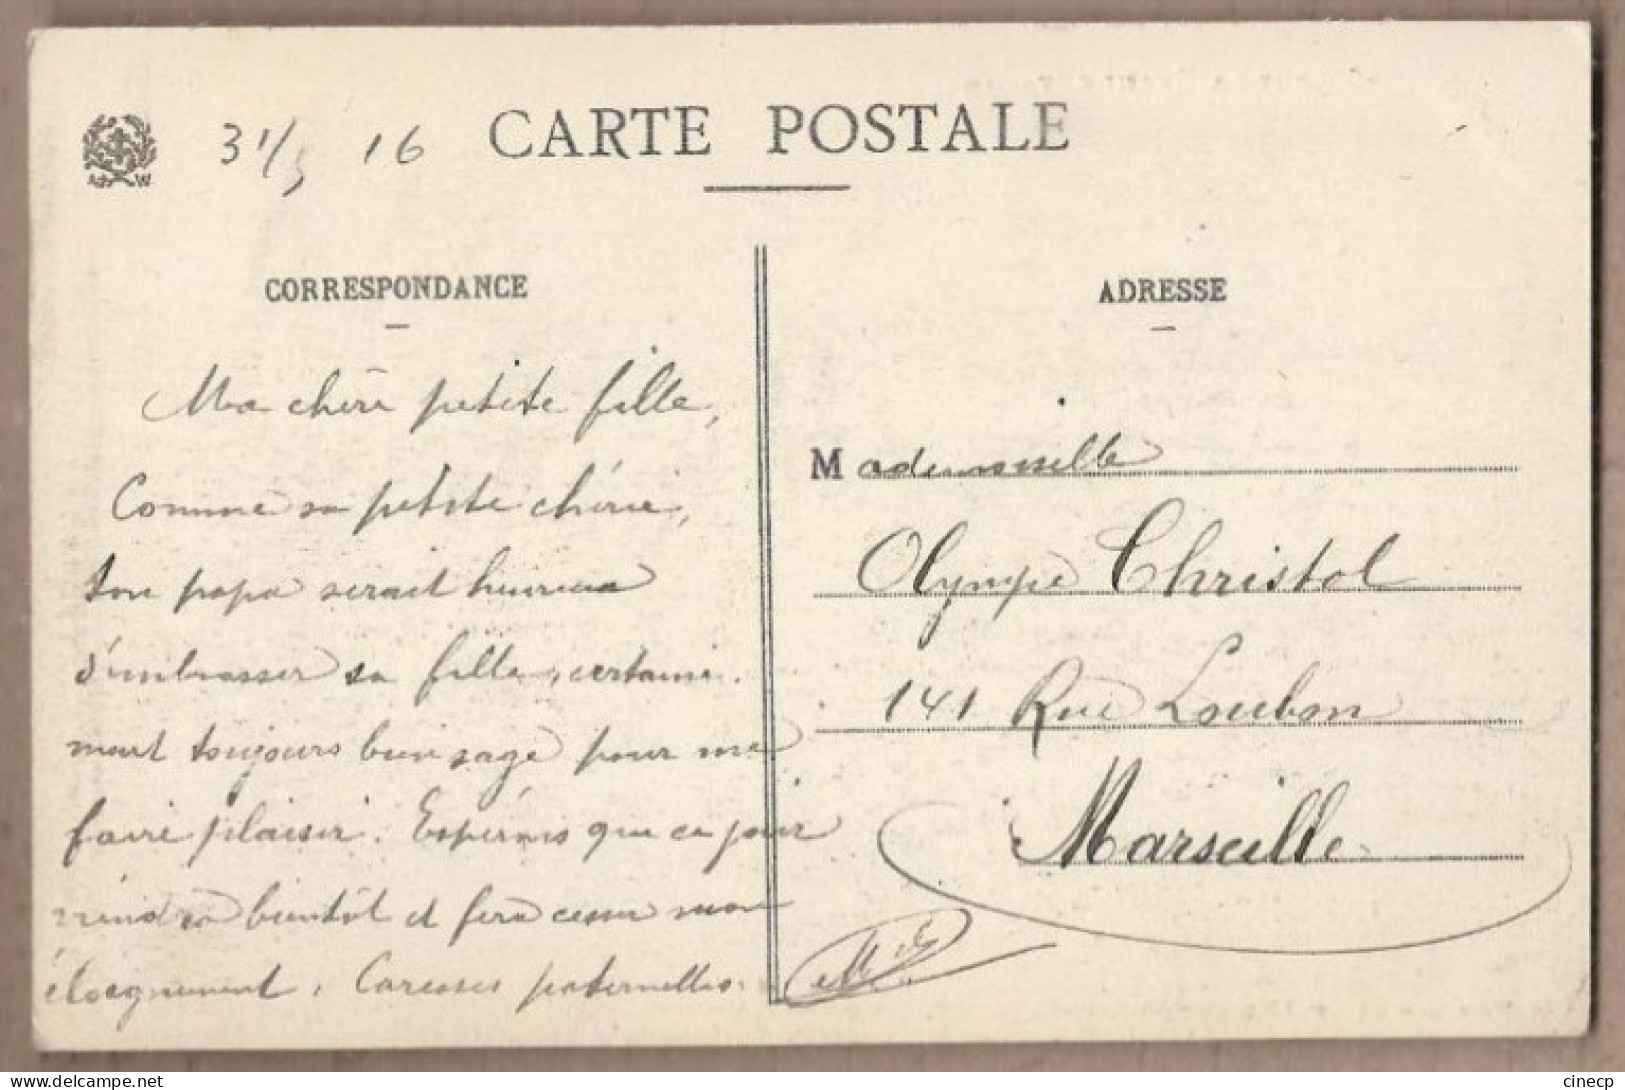 31/5 16
CARTE POSTALE
CORRESPONDANCE
Ma chère petite fille,
Comme sa petite chérie,
ton papa serait heureux
d'embrasser sa fille, certaine.
ment toujours bien sage pour me
faire plaisir. Espérons que ce jour
viendra bientôt et fera cesser mon
éloignement. Caresses paternelles.
ADRESSE
Mademoiselle
Olympe Christol
141 Rue Loubon
Marseille
cinecp